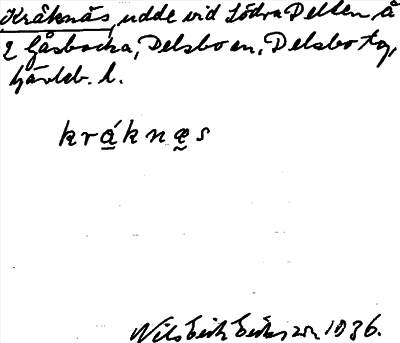 Kråknäs, udde vid Södra Dellen å
2 Gåsbacka, Delsbo sn, Delsbo tg,
Gävleb. l.
kráknæs
Nils Erik Eriksson 1936.